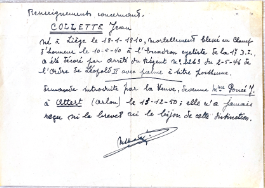 Renseignements concernant
COLLETTE Jean
né à Liège le 18-1-1910, mortellement blessé au champ
d'honneur le 10-5-40 à l'escadron cycliste de la 1° D.I.
a été décoré par arrêté du Régent n° 2263 du 2-5-46 de
l'Ordre de Léopold II avec palme à titre posthume.
Demande introduite par la Veuve, devenue Mme
à Attert (Arlon) le 18-12-50; elle n'a jamais
reçu ni le brevet ni le bijou de cette nomination.